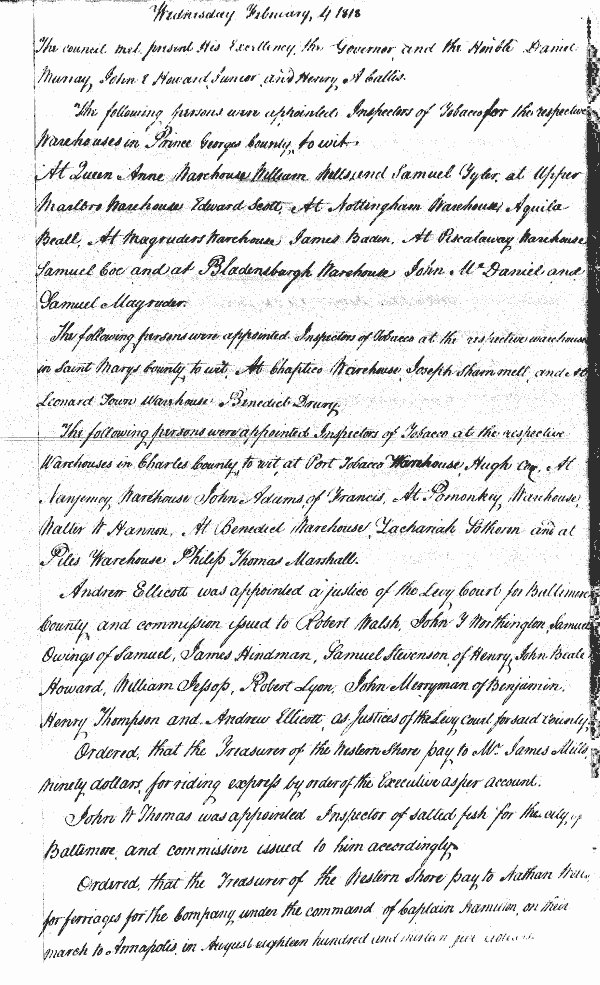 Wednesday February, 4 1818
The council met, present His Excellency the Governor and the Honble Daniel
Murray, John E Howard Junior and Henry A Callis.
The following persons were appointed Inspectors of Tobacco for the respective
Warehouses in Prince Georges County, to wit.
At Queen Anne Warehouse William Wells, and Samuel Tyler, at Upper
Marlbro Warehouse Edward Scott, At Nottingham Warehouse, Aquila
Beall, At Magruders Warehouse, James Baden, At Piscataway Warehouse
Samuel Coe and at Bladensburgh Warehouse John Mc Daniel and
Samuel Magruder.
The following persons were appointed Inspectors of Tobacco at the respective warehouses
in Saint Marys County to wit, At Chaptico Warehouse Joseph Shammell, and At
Leonard Town Warehouse Benedict Drury
The following persons were appointed Inspectors of Tobacco at the respective
Warehouses in Charles County, to wit, at Port Tobacco Warehouse, Hugh Cox, At
Nanjemoy Warehouse John Adams of Francis, At Pomonkey, Warehouse,
Walter W Hannon, At Benedict Warehouse Zachariah Sothorn and at
Piles Warehouse Philip Thomas Marshall.
Andrew Ellicott was appointed a justice of the Levy Court for Baltimore
County and commission issued to Robert Walsh, John T Worthington, Samuel
Owings of Samuel, James Hindman, Samuel Stevenson of Henry, John Beale
Howard, William Jessop, Robert Lyon, John Merryman of Benjamin,
Henry Thompson and Andrew Ellicott, as Justices of the Levy court for said County
Ordered, that the Treasurer of the Western Shore pay to Mr. James Mills,
ninety dollars, for riding express by order of the Executive as per account.
John W Thomas was appointed Inspector of salted fish for the city of
Baltimore and commission issued to him accordingly.
Ordered, that the Treasurer of the Western Shore pay to Nathan
for ferriages for the Company under the command of Captain Hamilton, on their
march to Annapolis in August eighteen hundred and